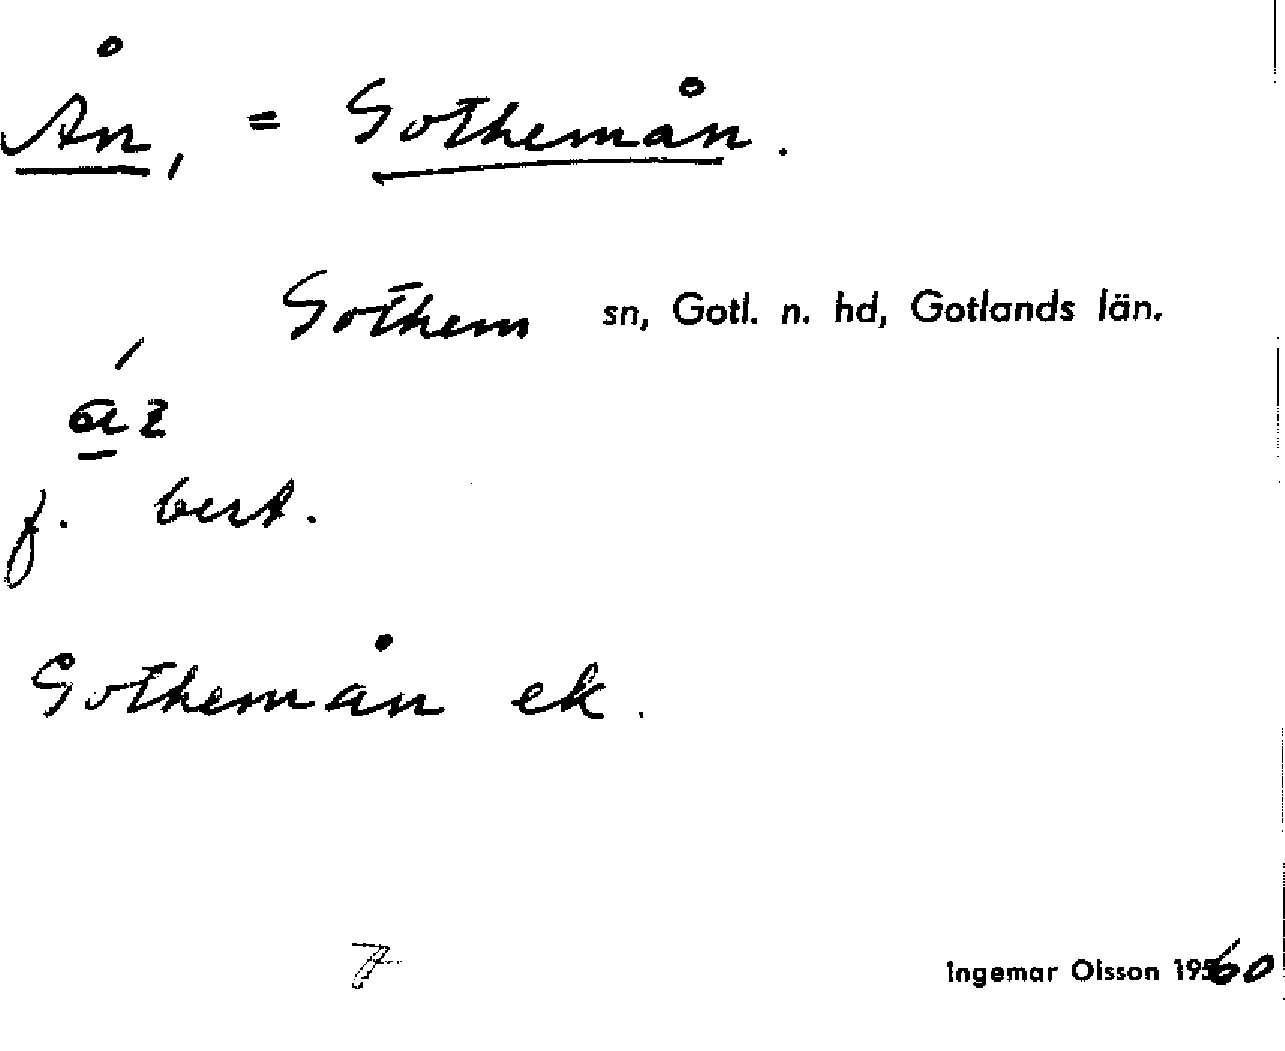 Ån, = Gothemån.
Gothem sn, Gotl. n. hd, Gotlands län.
f. best.
Gothemån ek.
Ingemar Olsson 1960